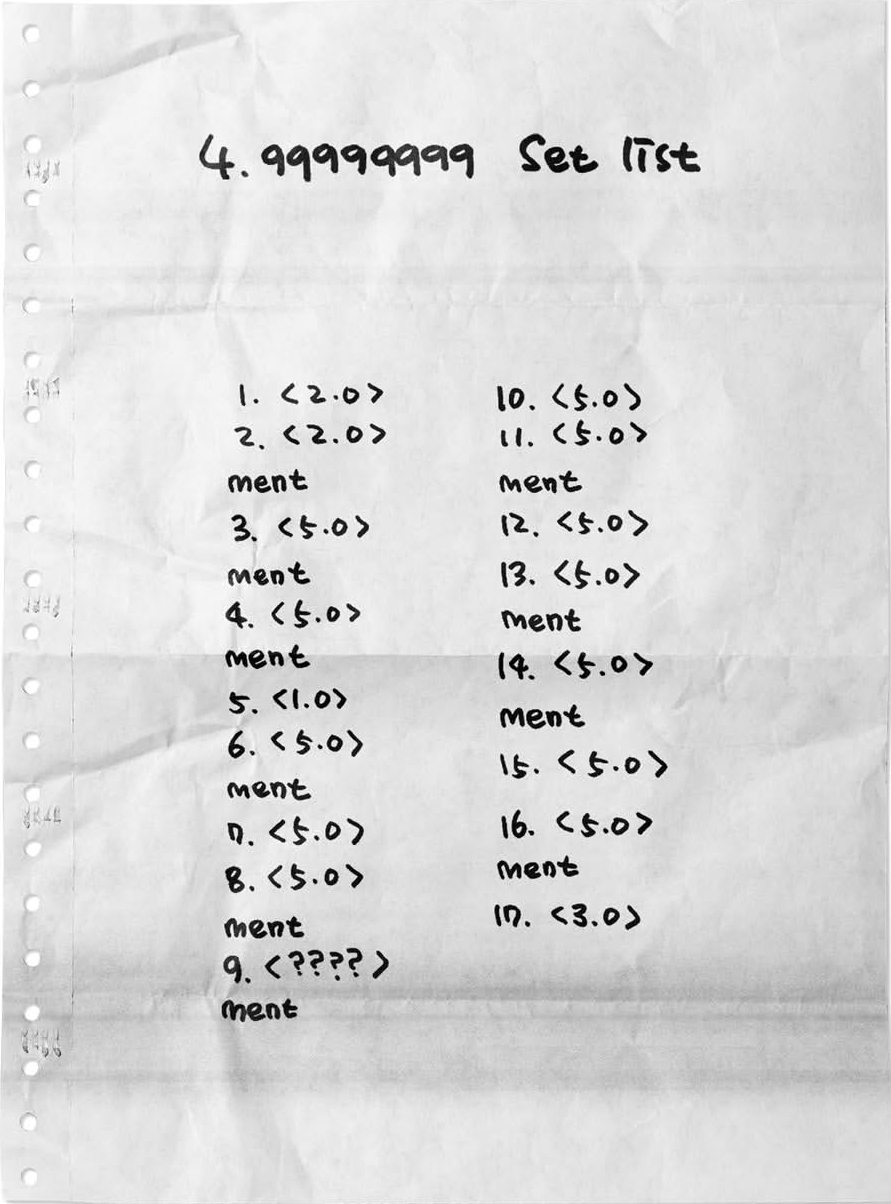 4.99999999 Set list
1. <2.0>
2. <2.0>
ment
3. <5.0>
ment
4. <5.0>
ment
5. <1.0>
6. <5.0>
ment
7. <5.0>
8. <5.0>
ment
9. <????>
ment
10. <5.0>
11. <5.0>
ment
12. <5.0>
13. <5.0>
ment
14. <5.0>
ment
15. <5.0>
16. <5.0>
ment
17. <3.0>